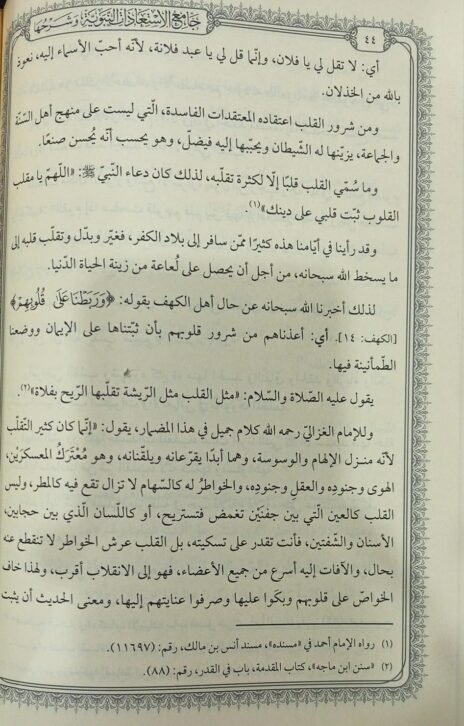 جَامِعُ الاسْتِعَاذَاتِ النَّبَوِيَّةِ وَشَرْحُهَا
٤٤
أي: لا تقل لي يا فلان، وإنّما قل لي يا عبد فلانة، لأنّه أحبّ الأسماء إليه، نعوذ
بالله من الخذلان.
ومن شرور القلب اعتقاده المعتقدات الفاسدة، الّتي ليست على منهج أهل السّنّة
والجماعة، يزيّنها له الشّيطان ويحبّبها إليه فيضلّ، وهو يحسب أنّه يُحسن صنعًا.
وما سُمّي القلب قلبًا إلّا لكثرة تقلّبه، لذلك كان دعاء النّبيّ ﷺ: «اللّهمّ يا مقلب
القلوب ثبّت قلبي على دينك»(١).
وقد رأينا في أيّامنا هذه كثيرًا ممّن سافر إلى بلاد الكفر، فغيّر وبدّل وتقلّب قلبه إلى
ما يسخط الله سبحانه، من أجل أن يحصل على لُعاعة من زينة الحياة الدّنيا.
لذلك أخبرنا الله سبحانه عن حال أهل الكهف بقوله: ﴿وَرَبَطْنَا عَلَىٰ قُلُوبِهِمْ﴾
[الكهف: ١٤]. أي: أعذناهم من شرور قلوبهم بأن ثبّتناها على الإيمان ووضعنا
الطّمأنينة فيها.
يقول عليه الصّلاة والسّلام: «مثل القلب مثل الرّيشة تقلّبها الرّيح بفلاة»(٢).
وللإمام الغزاليّ رحمه الله كلام جميل في هذا المضمار، يقول: «إنّما كان كثير التّقلّب
لأنّه منـزل الإلهام والوسوسة، وهما أبدًا يقرّعانه ويلقّنانه، وهو مُعْتَرَكُ المعسكرَيْن،
الهوى وجنودِه والعقلِ وجنودِه، والخواطرُ له كالسّهام لا تزال تقع فيه كالمطر، وليس
القلب كالعين الّتي بين جفنَيْن تغمض فتستريح، أو كاللّسان الّذي بين حجابين،
الأسنان والشّفتين، فأنت تقدر على تسكيته، بل القلب عرش الخواطر لا تنقطع عنه
بحال، والآفات إليه أسرع من جميع الأعضاء، فهو إلى الانقلاب أقرب، ولهذا خاف
الخواصّ على قلوبهم وبكَوا عليها وصرفوا عنايتهم إليها، ومعنى الحديث أن يثبت
(١) رواه الإمام أحمد في «مسنده»، مسند أنس بن مالك، رقم: (١١٦٩٧).
(٢) «سنن ابن ماجه»، كتاب المقدمة، باب في القدر، رقم: (٨٨).